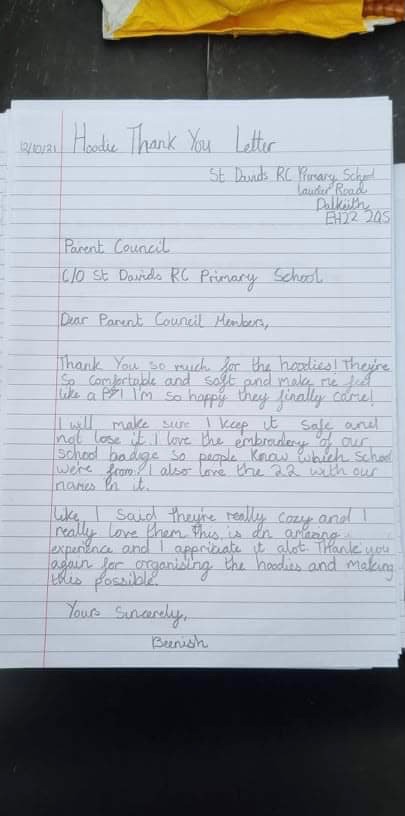 12/10/21 Hoodie Thank You Letter
St Davids RC Primary School
Lauder Road
Dalkeith
EH22 2QS
Parent Council
C/O St Davids RC Primary School
Dear Parent Council Members,
Thank You so much for the hoodies! They're
so comfortable and soft and make me feel
like a P7! I'm so happy they finally came!
I will make sure I keep it safe and
not lose it. I love the embroidery of our
school badge so people know which school
we're from. I also love the 22 with our
names in it.
Like I said they're really cozy and I
really love them this is an amazing
experience and I appriciate it alot. Thank you
again for organising the hoodies and making
this possible.
Yours Sincerely,
Beenish